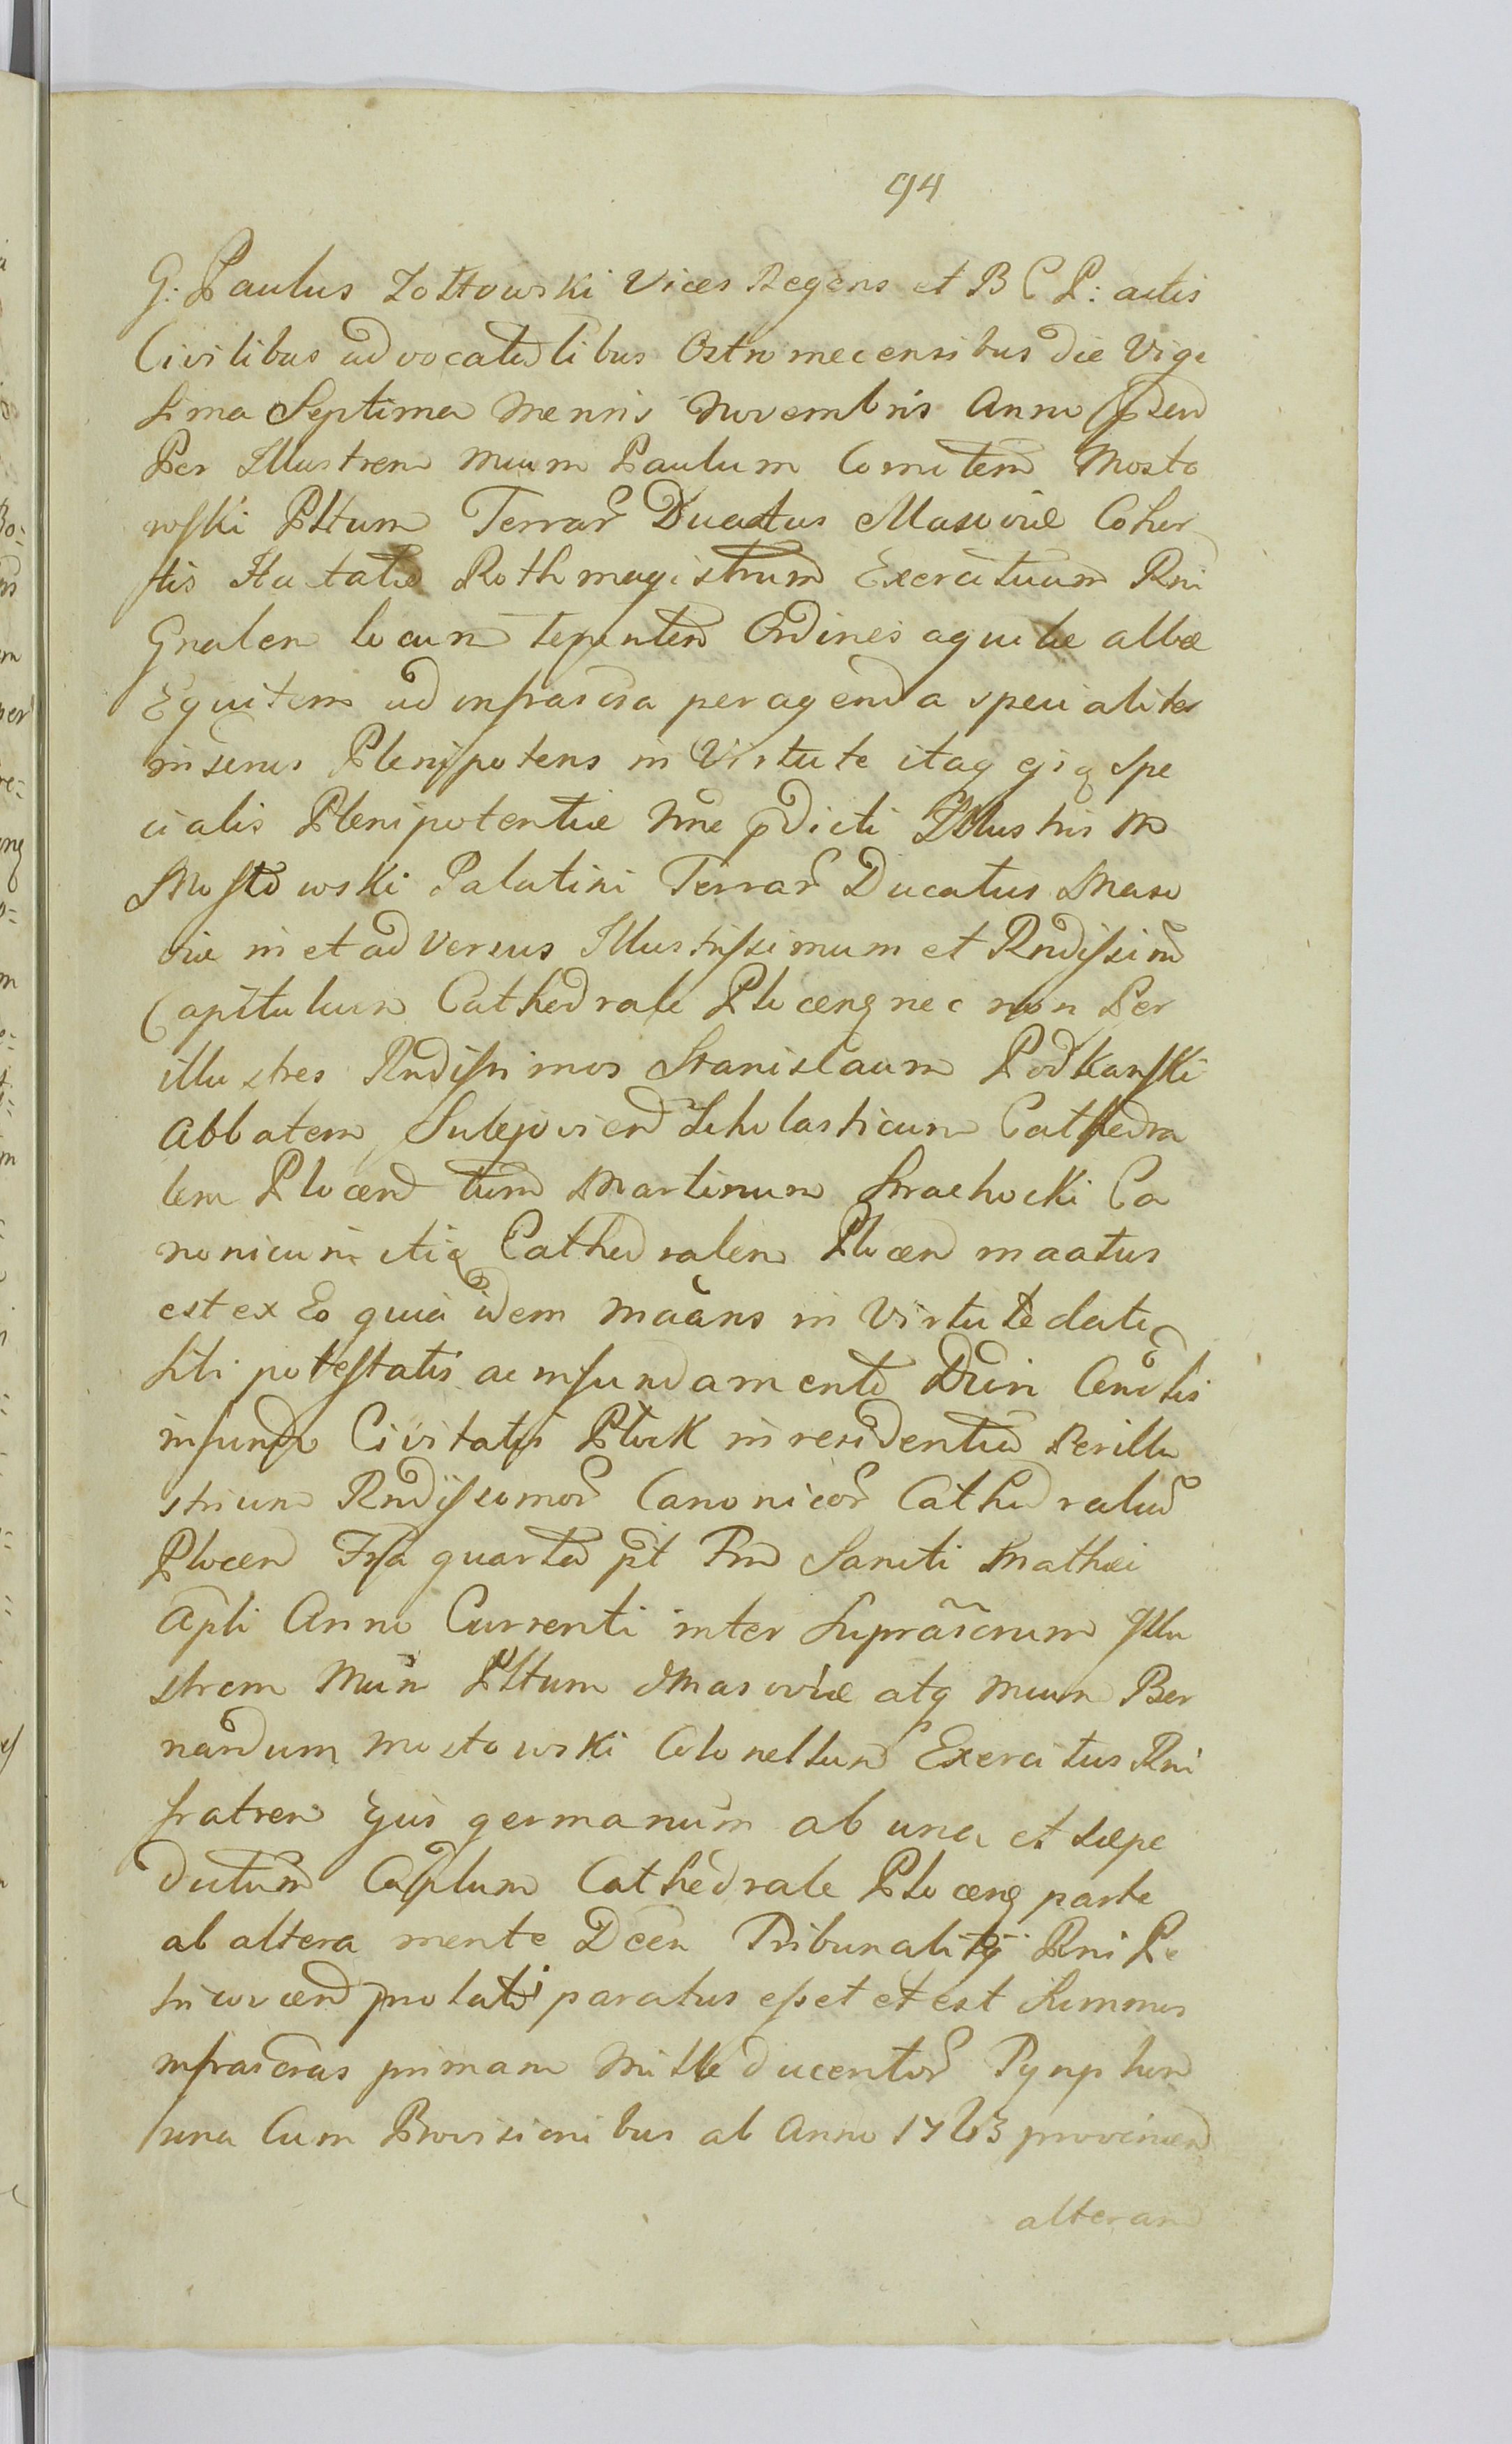 94
G: Paulus Zołtowski Vices Regens et B C P: actis
Civilibus advocatialibus Ostromecensibus die Vige
sima Septima mensis Novembris Anno psen
Per Illustrem Mcum Paulum Comitem Mosto
wski Plttum Terrar Ducatus Masoviæ Cohor
tis Hastatæ Rothmagistrum Exercituum Rni
Gnalem locum tenentem Ordinis aquilæ albæ
Equitem ad infrascra peragenda specialiter
Plenipotens in Virtute itaq ejq spe
cialis Plenipotentiæ Nne pdicti Illustris M
Mostowski Palatini Terrar Ducatus Maso
viæ in et adversus Illustrissimum et Rndissim
Capitulum Cathedrale Plocen nec non Per
illustres Rndissimos Stanislaum Podkanski
Abbatem Sulejovien Scholasticum Cathedra
lem Plocen tum Martinum Strachocki Ca
nonicum itiq Cathedralem Plocen maatus
est ex Eo quia idem maans in Virtute datæ
sibi potestatis ac in fundamento Dcin Condis
in fundo Civitatis Płock in residentia Perillu
strium Rndissimor Canonicor Cathedralium
Plocen Fria quarta pt Fm Sancti Mathæi
Apli Anno Currenti inter Suprascrum Illu
strem Mcum Plttum Masoviæ atq Mcum Ber
nardum Mostowski Colonellum Exercitus Rni
fratrem Ejus germanum ab una et sæpe
dictum Caplum Cathedrale Plocen parte
ab altera mente Dcen Tribunalitij Rni Pe
tricovien prolati paratus esset et est Summas
infrascras primam Mille ducentor Tynphon
una Cum Provisionibus ab Anno 1763 provenien
alteram